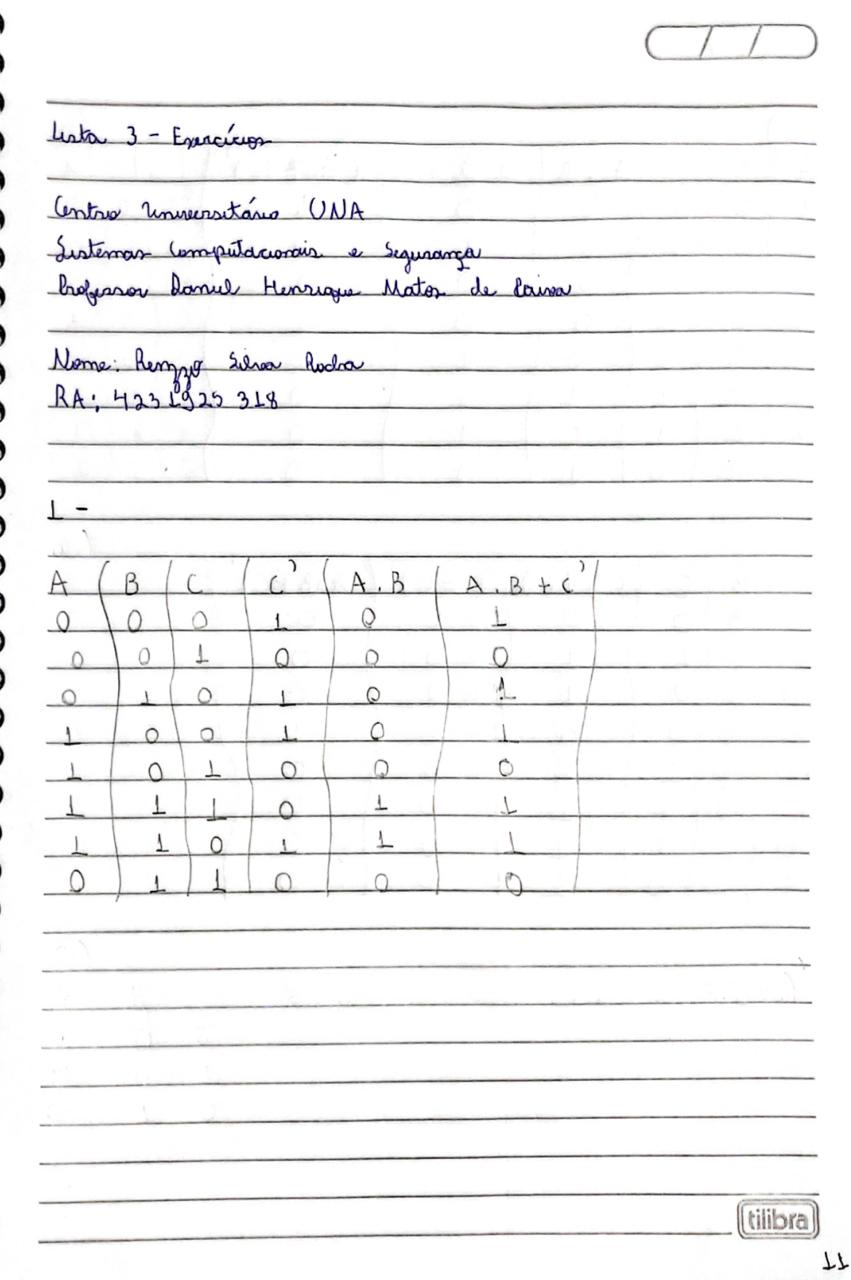 Lista 3 - Exercícios
Centro Universitário UNA
Sistemas Computacionais e Segurança
Professor Daniel Henrique Matos de Paiva
Nome: Renzzo Silva Rocha
RA: 4231925318
1 -
A B C C' A.B A.B + C'
0 0 0 1 0 1
0 0 1 0 0 0
0 1 0 1 0 1
1 0 0 1 0 1
1 0 1 0 0 0
1 1 1 0 1 1
1 1 0 1 1 1
0 1 1 0 0 0
tilibra
11